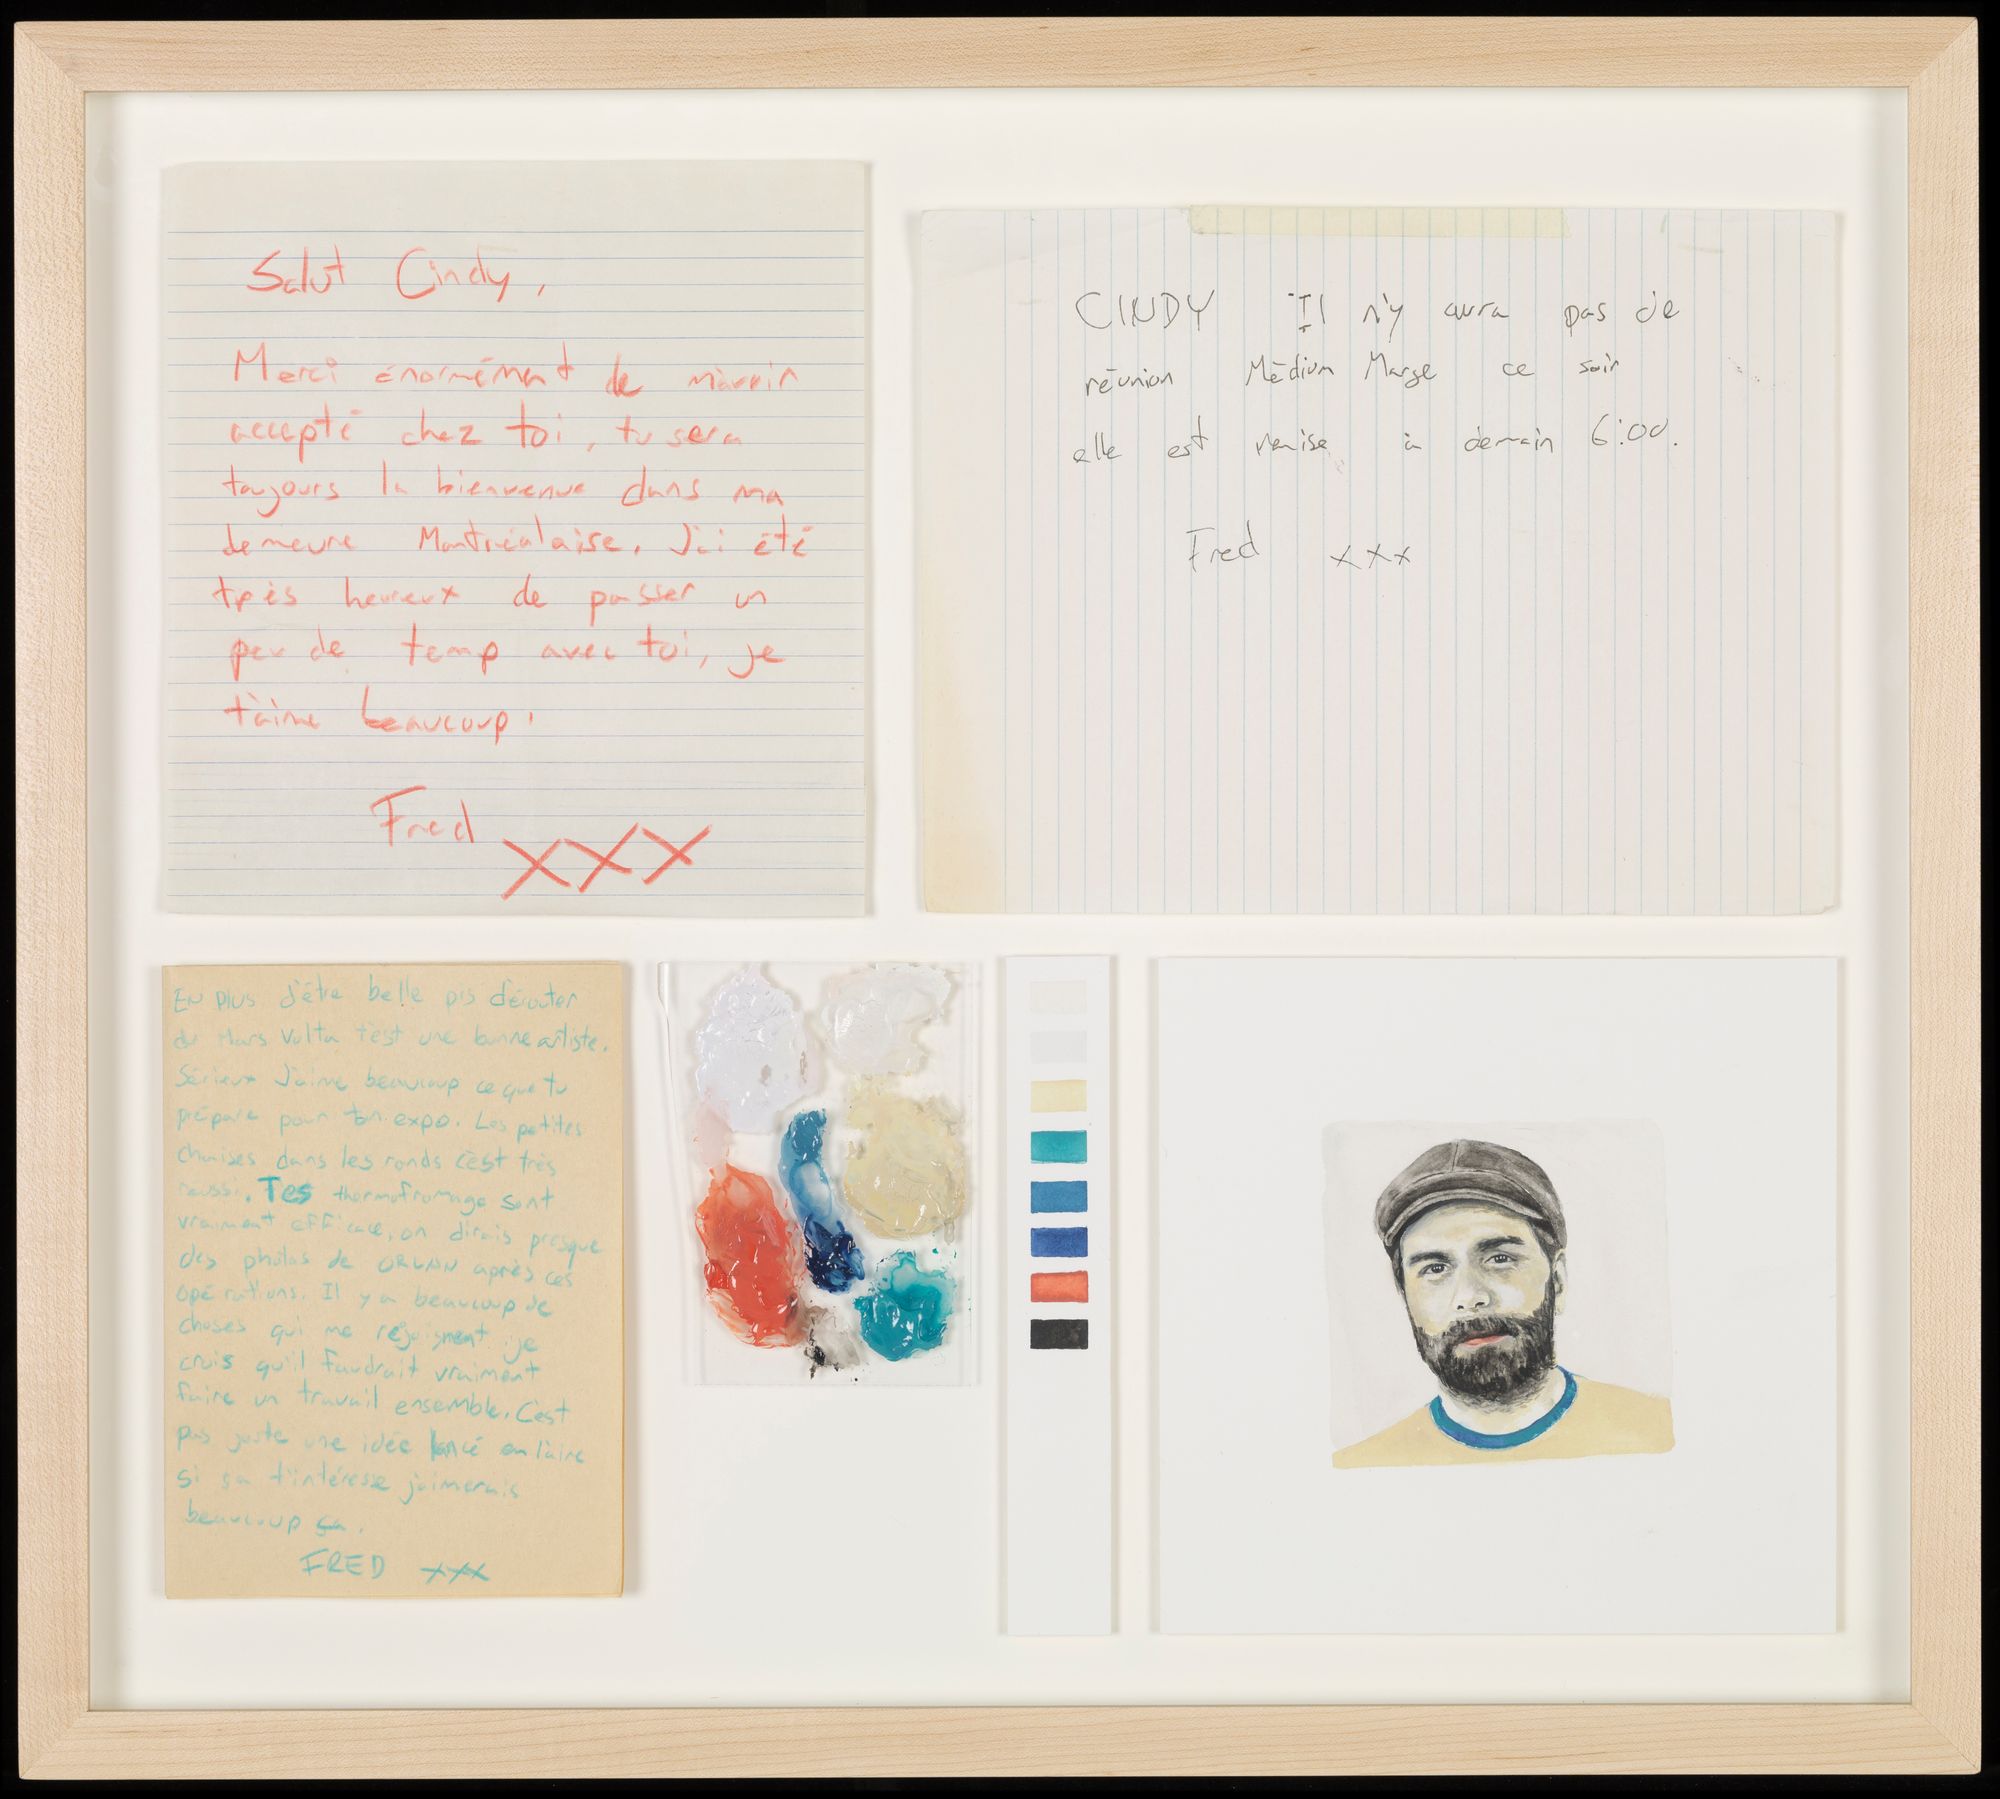 Salut Cindy,
Merci énormément de m'avoir
accepté chez toi, tu sera
toujours la bienvenue dans ma
demeure Montréalaise. J'ai été
très heureux de passer un
peu de temp avec toi, je
t'aime beaucoup.
Fred xxx
CINDY Il n'y aura pas de
réunion Médium Marge ce soir
elle est remise à demain 6:00.
Fred xxx
EN PLUS d'être belle pis d'écouter
du Mars Volta t'est une bonne artiste.
Sérieux J'aime beaucoup ce que tu
prépare pour ton expo. Les petites
chaises dans les ronds c'est très
réussi. Tes thermofromage sont
vraiment efficace, on dirais presque
des photos de ORLAN après ces
opérations. Il y a beaucoup de
choses qui me rejoignent je
crois qu'il faudrait vraiment
faire un travail ensemble. C'est
pas juste une idée lancé en l'aire
si ça t'intéresse j'aimerais
beaucoup ça.
FRED xxx